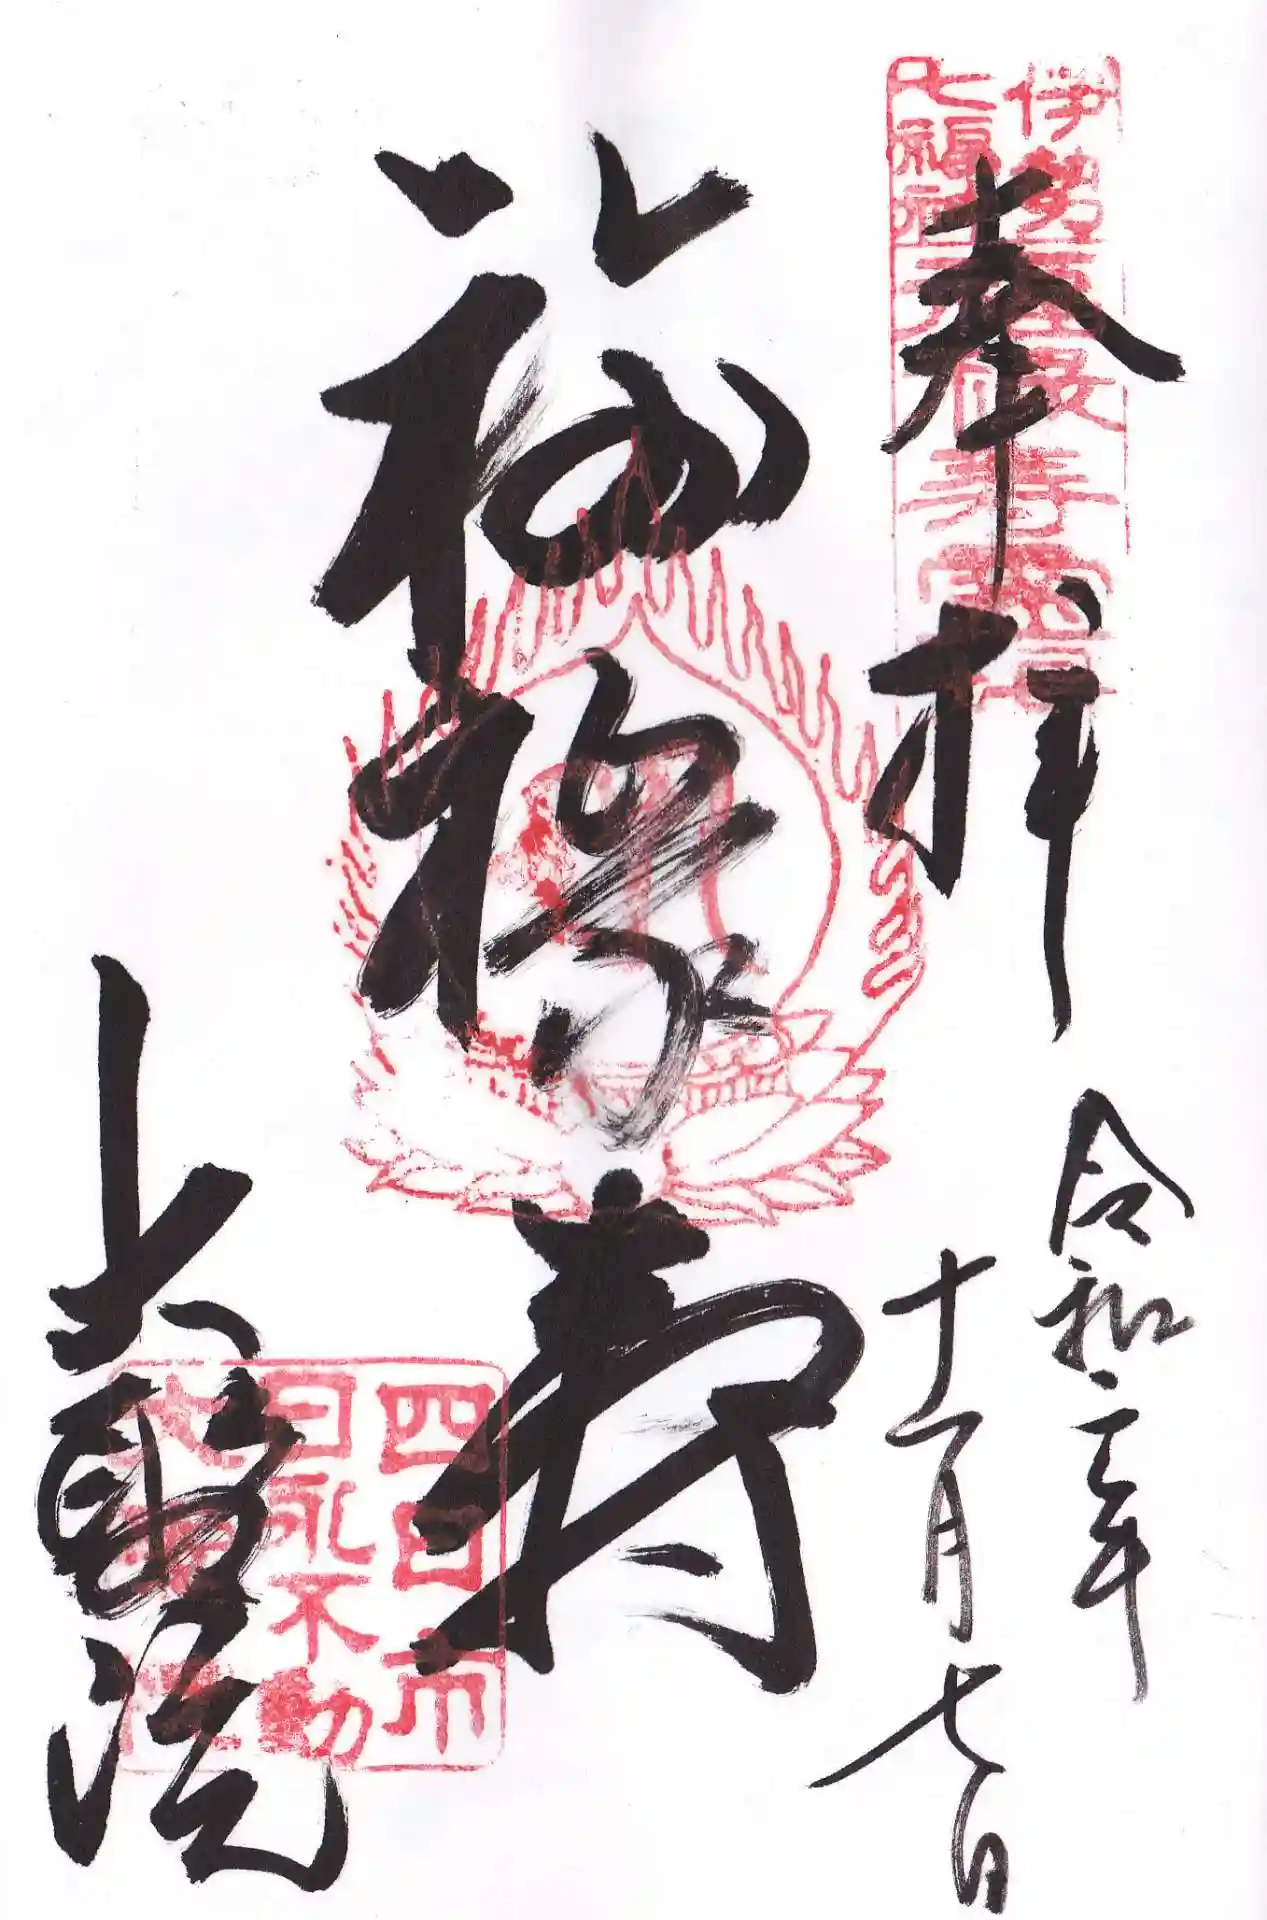 伊勢
七福
奉拝
令和二年
十一月七日
福禄寿
大聖院
四日市
日永不動
大聖院